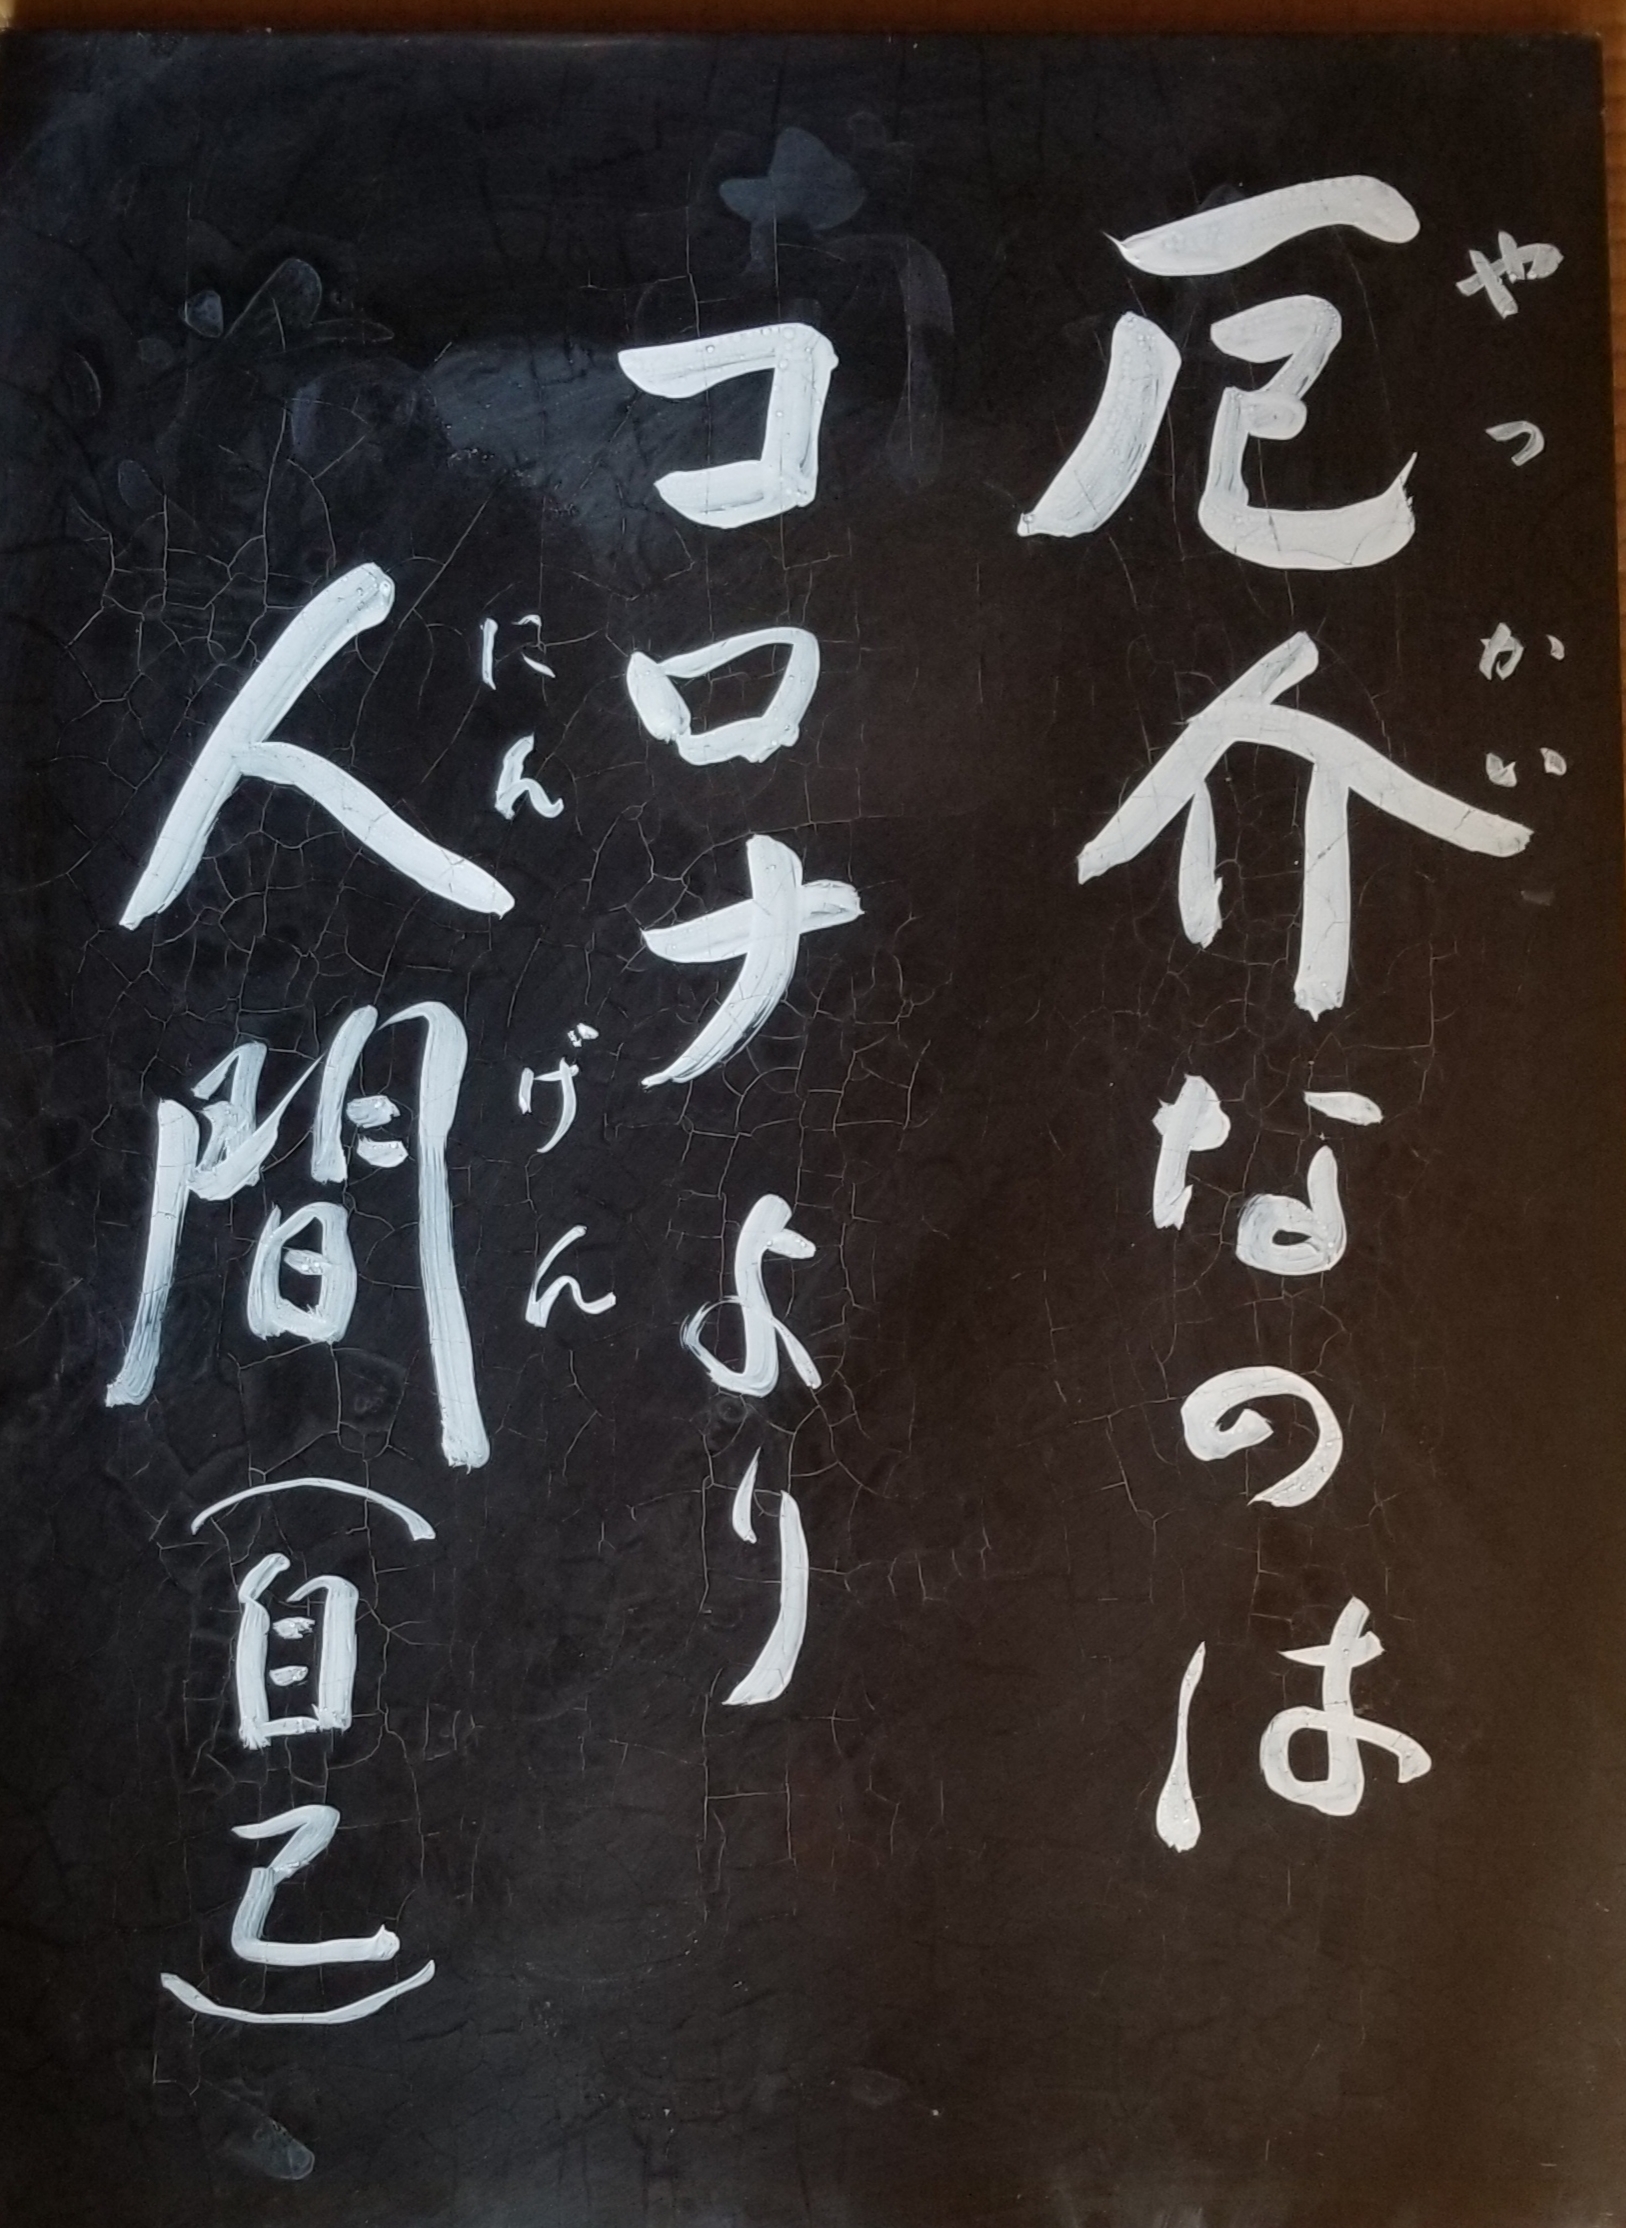 やっかい
厄介なのは
コロナより
にんげん
人間(自己)